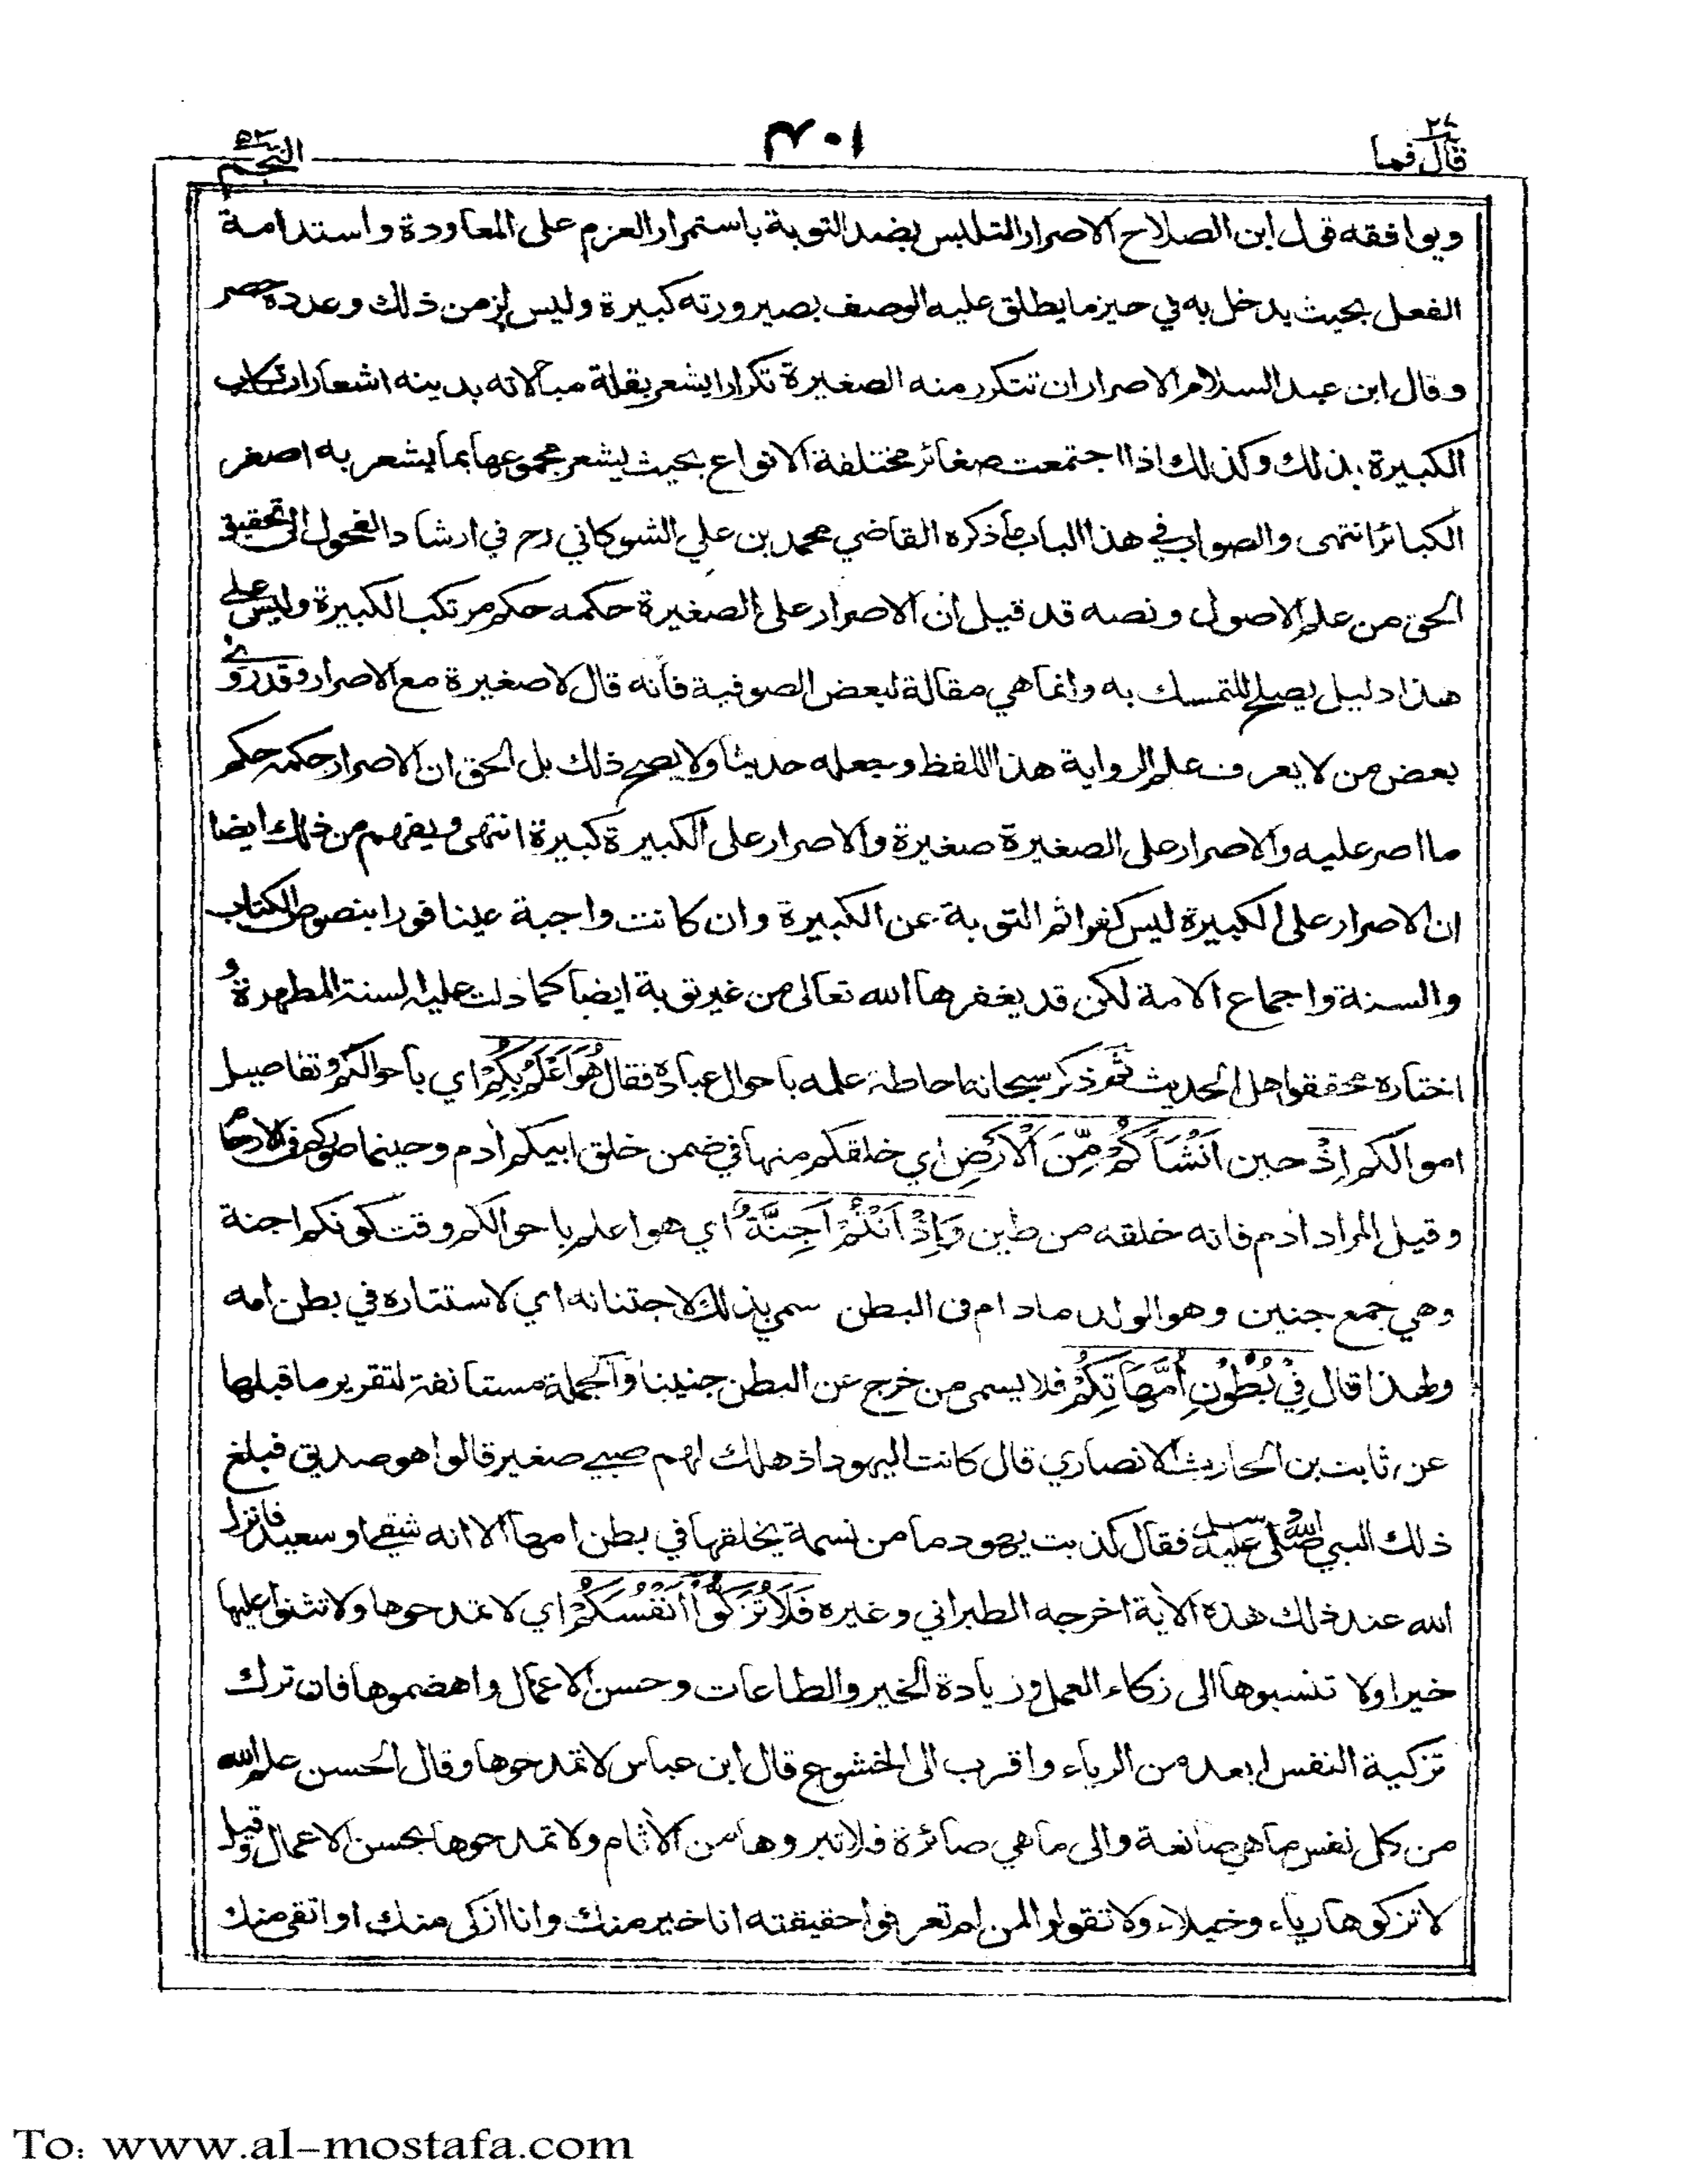 قال فما ٢٧
١٠٣
النجم ٥٣
ويوافقه قول ابن الصلاح الاصرار التلبس بضد التوبة باستمرار العزم على المعاودة واستدامة
الفعل بحيث يدخل به في حيز ما يطلق عليه الوصف بصيرورته كبيرة وليس لزمن ذلك وعدده حصر
وقال ابن عبد السلام الاصرار ان تتكرر منه الصغيرة تكرارا يشعر بقلة مبالاته بدينه اشعار ارتكاب
الكبيرة بذلك وكذلك اذا اجتمعت صغائر مختلفة الانواع بحيث يشعر مجموعها بما يشعر به اصغر
الكبائر انتهى والصواب في هذا الباب ما ذكره القاضي محمد بن علي الشوكاني رح في ارشاد الفحول الى تحقيق
الحق من علم الاصول ونصه قد قيل ان الاصرار على الصغيرة حكمه حكم مرتكب الكبيرة وليس على
هذا دليل يصلح للتمسك به وانما هي مقالة لبعض الصوفية فانه قال لا صغيرة مع الاصرار وقد روى
بعض من لا يعرف علم الرواية هذا اللفظ وجعله حديثا ولا يصح ذلك بل الحق ان الاصرار حكمه حكم
ما اصر عليه والاصرار على الصغيرة صغيرة والاصرار على الكبيرة كبيرة انتهى ويفهم من ذلك ايضا
ان الاصرار على الكبيرة ليس كفرا ثم التوبة عن الكبيرة وان كانت واجبة عينا فورا بنصوص الكتاب
والسنة واجماع الامة لكن قد يغفرها الله تعالى من غير توبة ايضا كما دلت عليه السنة المطهرة و
اختاره محققوا اهل الحديث ثم ذكر سبحانه احاطة علمه باحوال عباده فقال هُوَ اَعْلَمُ بِكُمْ اي باحوالكم وتفاصيل
اموالكم اِذْ حين اَنْشَاَكُمْ مِّنَ الْاَرْضِ اي خلقكم منها في ضمن خلق ابيكم اٰدم وحينما صوركم في الارحام
وقيل المراد اٰدم فانه خلقه من طين وَاِذْ اَنْتُمْ اَجِنَّةٌ اي هو اعلم باحوالكم وقت كونكم اجنة
وهي جمع جنين وهو الولد ما دام في البطن سمي بذلك لاجتنانه اي لاستتاره في بطن امه
ولهذا قال فِيْ بُطُوْنِ اُمَّهَاتِكُمْ فلا يسمى من خرج عن البطن جنينا والجملة مستانفة لتقرير ما قبلها
عن ثابت بن الحارث الانصاري قال كانت اليهود اذ هلك لهم صبي صغير قالوا هو صديق فبلغ
ذلك النبي صلى الله عليه وسلم فقال كذبت يهود ما من نسمة يخلقها في بطن امها الا انه شقي او سعيد فانزل
الله عند ذلك هذه الاٰية اخرجه الطبراني وغيره فَلَا تُزَكُّوْا اَنْفُسَكُمْ اي لا تمدحوها ولا تثنوا عليها
خيرا ولا تنسبوها الى زكاء العمل وزيادة الخير والطاعات وحسن الاعمال واهضموها فان ترك
تزكية النفس ابعد من الرياء واقرب الى الخشوع قال ابن عباس لا تمدحوها وقال الحسن علم الله
من كل نفس ما هي صانعة والى ما هي صائرة فلا تبروها من الاٰثام ولا تمدحوها بحسن الاعمال وقيل
لا تزكوها رياء وخيلاء ولا تقولوا لمن لم تعرفوا حقيقته انا خير منك وانا ازكى منك او اتقى منك
To: www.al-mostafa.com